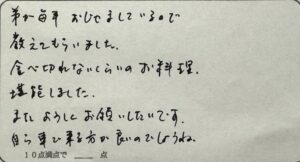 弟が毎年おじゃましているので
教えてもらいました。
食べ切れないくらいのお料理。
堪能しました。
またよろしくお願いしたいです。
自ら車で来る方が良いのでしょうね。
10点満点で＿＿点